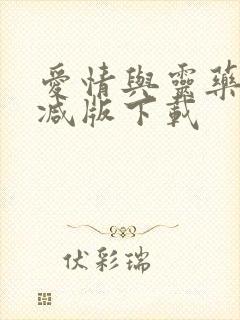 愛情與靈藥
減版下載
伏彩瑞